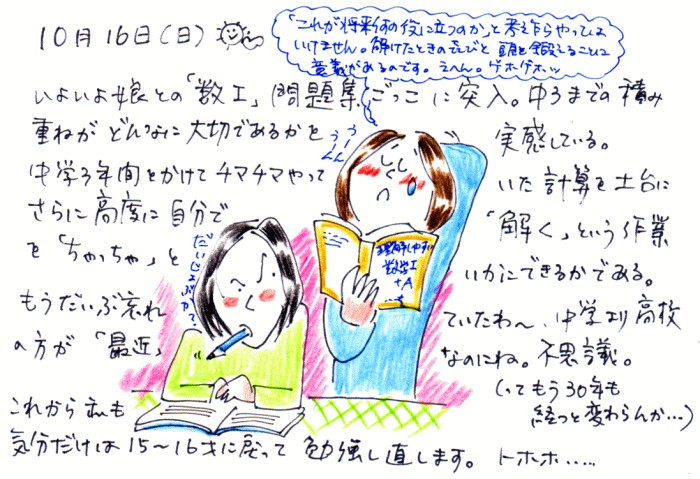 10月16日(日)
「これが将来何の役に立つのか」と考え乍らやっては
いけません。解けたときの喜びと頭を鍛えることに
意義があるのです。えへん。ゲホゲホッ
いよいよ娘との「数I」問題集ごっこに突入。中3までの積み
重ねがどんなに大切であるかを 実感している。
中学3年間をかけてチマチマやって いた計算を土台に
さらに高度に自分で 「解く」という作業
を「ちゃっちゃ」と いかにできるかである。
もうだいぶ忘れ ていたわ〜、中学より高校
の方が「最近」 なのにね。不思議。
(ってもう30年も
経つと変わらんか…)
これから私も
気分だけは15〜16才に戻って勉強し直します。トホホ‥‥
うーん
うーん
だいじょぶかて
理解しやすい
数学I
+A